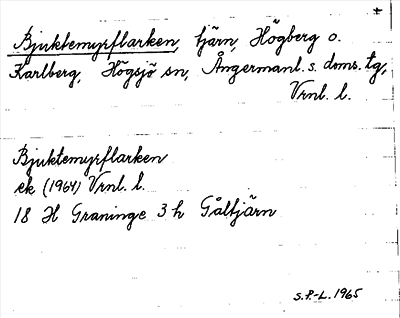 Bjuktemyrflarken, tjärn, Högberg o.
Karlberg, Högsjö sn, Ångermanl. s. doms. tg,
Vrnl. l.
Bjuktemyrflarken
ek (1964) Vrnl. l.
18 H Graninge 3 h Gåltjärn
S.P.-L. 1965